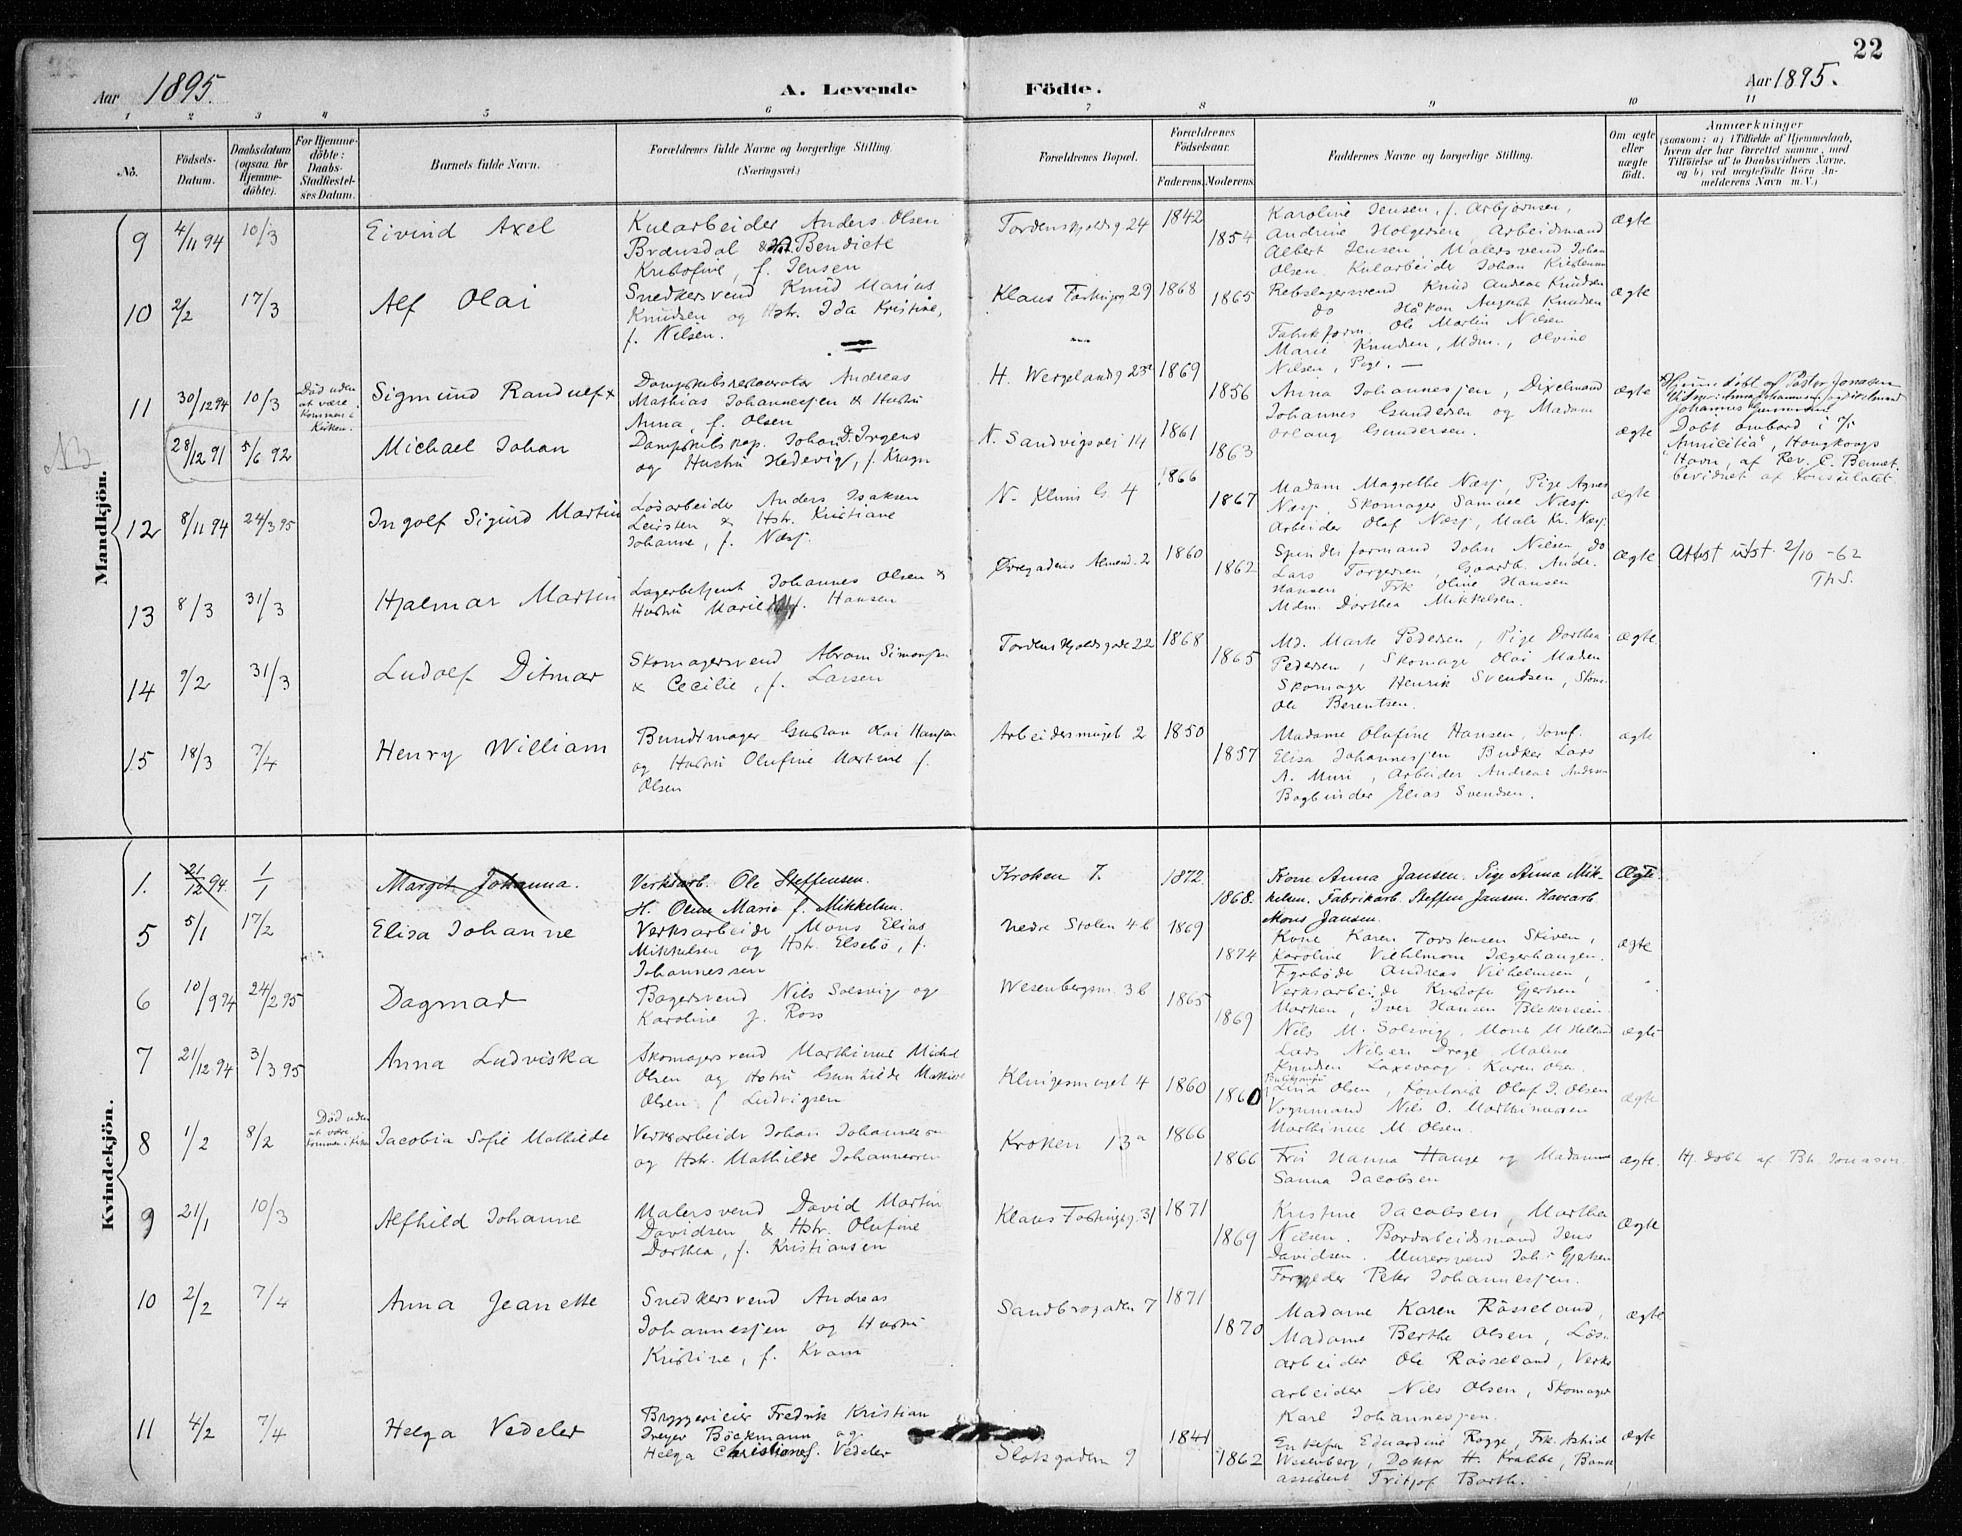 22
Aar 1895. A. Levende Födte. Aar 1895.
1 2 3 4 5 6 7 8 9 10 11
No.
Födsels-Datum.
Daabsdatum (ogsaa for Hjemme-döbte).
For Hjemme-döbte: Daabs-Stadfæstel-ses Datum.
Barnets fulde Navn.
Forældrenes fulde Navne og borgerlige Stilling. (Næringsvei.)
Forældrenes Bopæl.
Forældrenes Födselsaar.
Faderens. Moderens.
Faddernes Navne og borgerlige Stilling.
Om ægte eller uægte födt.
Anmærkninger
(saasom: a) i Tilfælde af Hjemmedaab,
hvem der har forrettet samme, med
Tilföielse af to Daabsvidners Navne,
og b) ved uægtefödte Börn An-
melderens Navn m. V.)
Mandkjön.
9 4/11 94 10/3 Eivind Axel
Kularbeider Anders Olsen
Brænsdal & Hst. Bendicte
Kristofine, f. Jensen
Tordenskjoldsg 24 1842 1854
Karoline Jensen, f. Asbjørnsen,
Andrine Holgersen, Arbeidsmand
Albert Jensen, Malersvend Johan
Olsen, Kularbeider Johan
ægte
10 2/2 17/3 Alf Olai
Snedkersvend Knud Marius
Knudsen og Hstr. Ida Kristine,
f. Nilsen.
Klaus 29 1868 1865
Rebslagersvend Knud Andreas Knudsen
do Håkon August Knudsen
Fabrikform. Ole Martin Nilsen
Marie Knudsen, Mdm., Olvine
Nilsen, Pige. —
ægte
11 30/12 94 10/3
Død uden
at være
kommen i
Kirken.
Sigmund Randulf x
Dampskibsrestauratør Andreas
Mathias Johannesjen & Hustru
Anna, f. Olsen
H. Wergelandsg 23a 1869 1856
Anna Johannesjen,
Johannes Gundersen og Madam
Gundersen.
ægte
x Hjemmedøbt af Pastor Jonasen
NB
28/12 91 5/6 92 Michael Johan
Dampskibskap. Johan D. Irgens
og Hustru Hedevig, f. Kragn
N. Sandvigsvei 14 1861 1863
ægte
Døbt ombord i
"Amicitia", Hongkongs
Havn, af Rev. C. Bennet.
bevidnet af Konsulatet
12 8/11 94 24/3 95 Ingolf Sigurd Martin
Løsarbeider Anders Isaksen
Leirsten & Hstr. Kristiane
Johanne, f. Næsj.
N. Klims G. 4 1866 1867
Madam Magrethe Næsj, Pige Agnes
Næsj, Skomager Samuel Næsj
Arbeider Olaf Næsj, Maler Kr. Næsj.
ægte
13 8/3 31/3 Hjalmar Martin
Lagerbetjent Johannes Olsen &
Hustru Marie f. Hansen
Øvregadens Almend. 2 1860 1862
Spinderformand John Nilsen, do
Lars Torgersen, Gaardb. Andr.
Hansen Frk Oline Hansen
Mdm. Dorthea Mikkelsen.
ægte
Attest utst. 2/10 -62
ThS.
14 9/2 31/3 Ludolf Ditmar
Skomagersvend Abram Simonsen
& Cecilie, f. Larsen
Tordenskjoldsgade 22 1868 1865
Md. Marte Pedersen, Pige Dorthea
Pedersen, Skomager Olai Madsen
Skomager Henrik Svendsen, Skom.
Ole Berentsen.
ægte
15 18/3 7/4 Henry William
Bundtmager Gustav Olai Hansen
og Hustru Olufine Martine f.
Olsen
Arbeidersmuget 2 1850 1857
Madame Olufine Hansen, Jomf.
Elisa Johannesjen Bødker Lars
A. Muri, Arbeider Andreas Andersen
Bogbinder Elias Svendsen.
ægte
Kvindekjön.
1. 21/12 94. 1/1 Margit Johanna.
Verksarb. Ole Steffensen.
H. Oline Marie f. Mikkelsen.
Kroken 7. 1872 1868.
Kone Anna Jansen. Pige Anna Mik-
kelsen. Fabrikarb. Steffen Jansen. Havearb.
Mons Jansen.
Ægte.
5 5/1 17/2 Elisa Johanne
Verksarbeider Mons Elias
Mikkelsen og Hstr. Elsebø, f.
Johannessen
Nedre Stølen 4b 1869 1874
Kone Karen Torstensen Skiven,
Karoline Vilhelmsen Jægerhaugen.
Fyrbøder Andreas Vilhelmsen,
Verksarbeider Kristofer Gjertsen
ægte
6 10/9 94 24/2 95 Dagmar
Bagersvend Nils Solsvig og
Karoline f. Ross
Wesenbergsm. 3b 1865 1869
Marken, Iver Hansen Blekeveien
Nils M. Solsvig, Mons M Helland
Lars Nilsen Drage Malene
Knudsen Laxevaag. Karen Olsen
ægte
7 21/12 94 3/3 95 Anna Ludviska
Skomagersvend Marthinus Michal
Olsen og Hstru Gunhilde Mathilde
Olsen f Ludvigsen
Klingesmuget 4 1860 1860
Lina Olsen, Kontorist Olaf J. Olsen
Vognmand Nils O. Marthinussen
Marthinus M. Olsen.
ægte
8 1/2 8/2
Død uden
at være
kommen i Kirken
Jacobia Sofie Mathilde
Verksarbeider Johan Johannessen
og Hstr. Mathilde Johannessen
Kroken 13a 1866 1866
Fru Hanna Hauge og Madamme
Sanna Jacobsen
ægte.
Hj. døbt af Bh. Jonasen.
9 21/1 10/3 Alfhild Johanne
Malersvend David Martin
Davidsen & Hstr. Olufine
Dorthea, f. Kristiansen
Klaus 31 1871 1869
Kristine Jacobsen, Martha
Nilsen. Bordarbeidsmand Jens
Davidsen. Murersvend Joh. Gjertsen
Forgylder Peter Johannesjen.
ægte
10 2/2 7/4 Anna Jeanette
Snedkersvend Andreas
Johannesjen og Hustru
Kristine, f. Kvam
Sandbrogaden 7 1871 1870
Madame Karen Røsseland,
Madame Berthe Olsen, Løs-
arbeider Ole Røsseland, Verks
arbeider Nils Olsen, Skomager
Karl Johannesjen.
ægte
11 4/2 7/4 Helga Vedeler
Bryggerieier Fredrik Kristian
Dreyer Böckmann og
Helga Christiane f. Vedeler
Slotsgaden 9 1841 1862
Enkefru Eduardine Rogge, Frk. Astrid
Wesenberg, Doktor H. Krabbe, Bank
assistent Fritjof Barth.
ægte